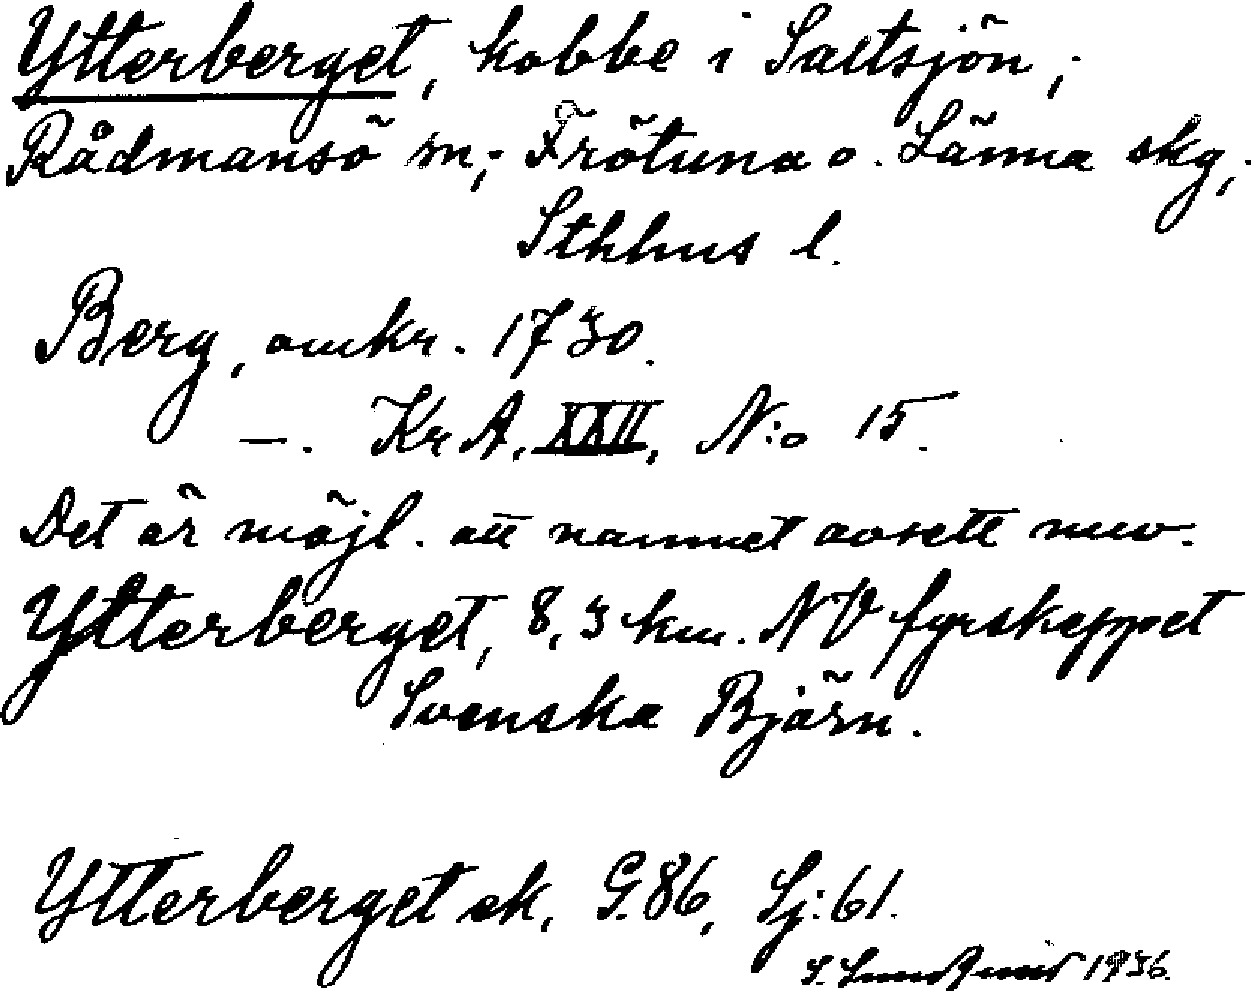 Ytterberget, kobbe i Saltsjön,;
Rådmansö sn,; Frötuna o. Länna skg,;
Sthlms l.
Berg, omkr. 1730.
—. KrA, XXII, N:o 15.
Det är möjl. att namnet avsett nuv.
Ytterberget, 8,3 km. NV fyrskeppet
Svenska Björn.
Ytterberget ek, G.86, Sj:61.
S. Lundqvist 1936.